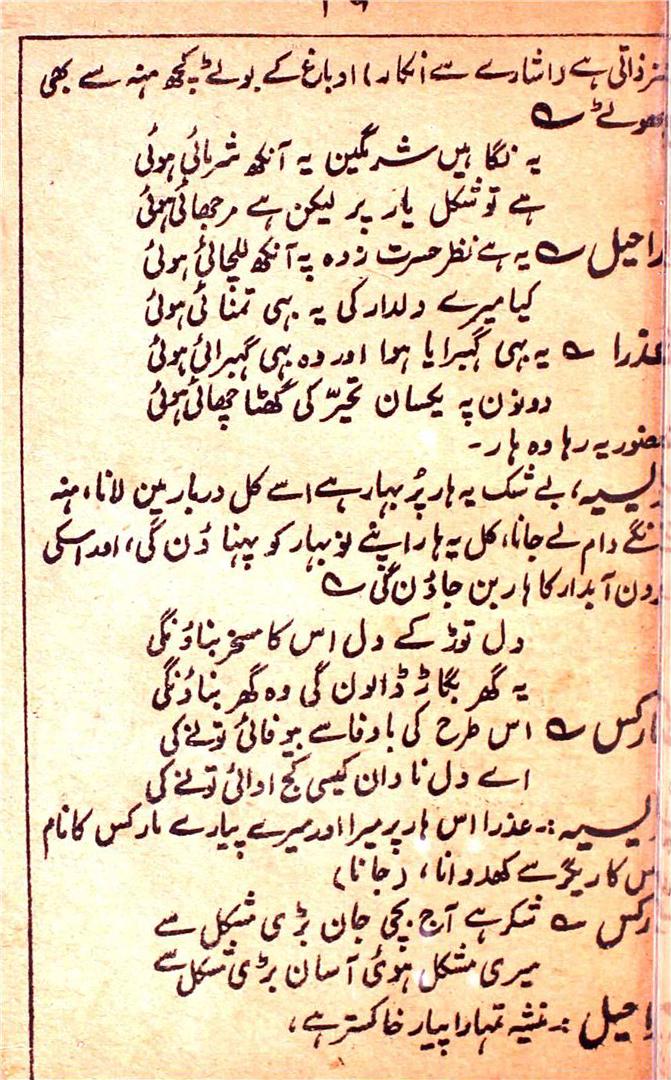 ۱۶
ہنر ذاتی ہے (اشارے سے انکار) او باغ کے بوٹے کچھ منہ سے بھی
پھوٹے ؎
یہ نگاہیں شرمگین یہ آنکھ شرمائی ہوئی
ہے تو شکل یار پر لیکن ہے مرجھائی ہوئی
راحیل ؎ یہ ہے نظر حسرت زدہ یہ آنکھ للچائی ہوئی
کیا میرے دلدار کی یہ بہی تمنائی ہوئی
عذرا ؎ یہ بہی گہبرایا ہوا اور وہ بہی گہبرائی ہوئی
دونون پہ یکسان تحیّر کی گھٹا چھائی ہوئی
حضور یہ رہا وہ ہار۔
ڈیسیہ، بے شک یہ ہار پُر بہار ہے اسے کل دربار مین لانا، منہ
مانگے دام لے جانا، کل یہ ہار اپنے نو بہار کو پہنا دُن گی، اور اسکی
گردن آبدار کا ہار بن جاؤن گی ؎
دل توڑ کے دل اس کا مسخر بناؤنگی
یہ گھر بگاڑ ڈالون گی وہ گھر بناؤنگی
مارکس ؎ اس طرح کی باوفا سے بیوفائی تونے کی
اے دل نادان کیسی کج ادائی تونے کی
ڈیسیہ :۔ عذرا اس ہار پر میرا اور میرے پیارے مارکس کا نام
اس کاریگر سے کھدوانا، (جانا)
مارکس ؎ شکر ہے آج بچی جان بڑی مشکل سے
میری مشکل ہوئی آسان بڑی مشکل سے
راحیل :۔ منشیہ تمہارا پیار خاکستر ہے،